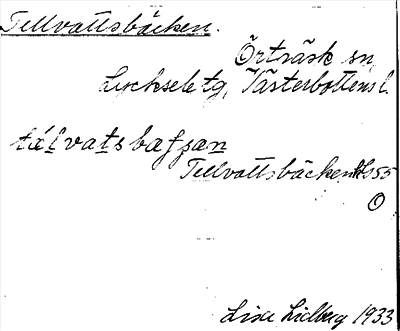 Tellvattsbäcken.
Örträsk sn
Lycksele tg, Västerbottens l.
Tellvattsbäcken
Lisa Lidberg 1933